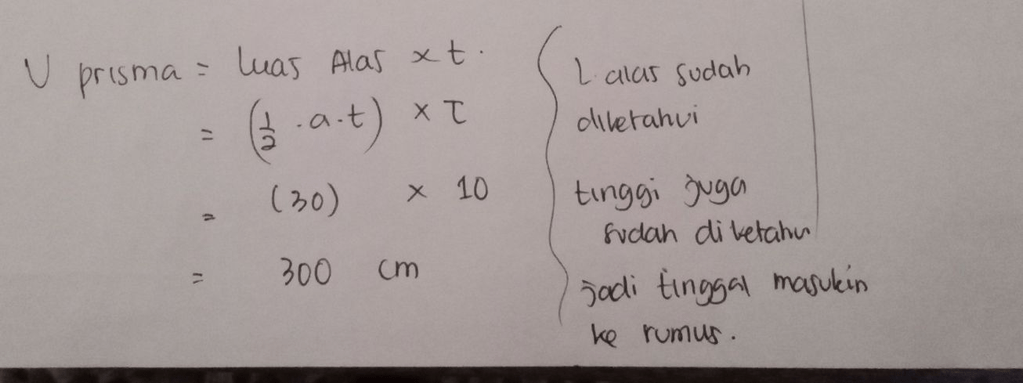 V prisma = Luas Alas x t.
= (1/2 . a . t) x T
= (30) x 10
= 300 cm
L alas sudah
diketahui
tinggi juga
sudah diketahu
jadi tinggal masukin
ke rumus.